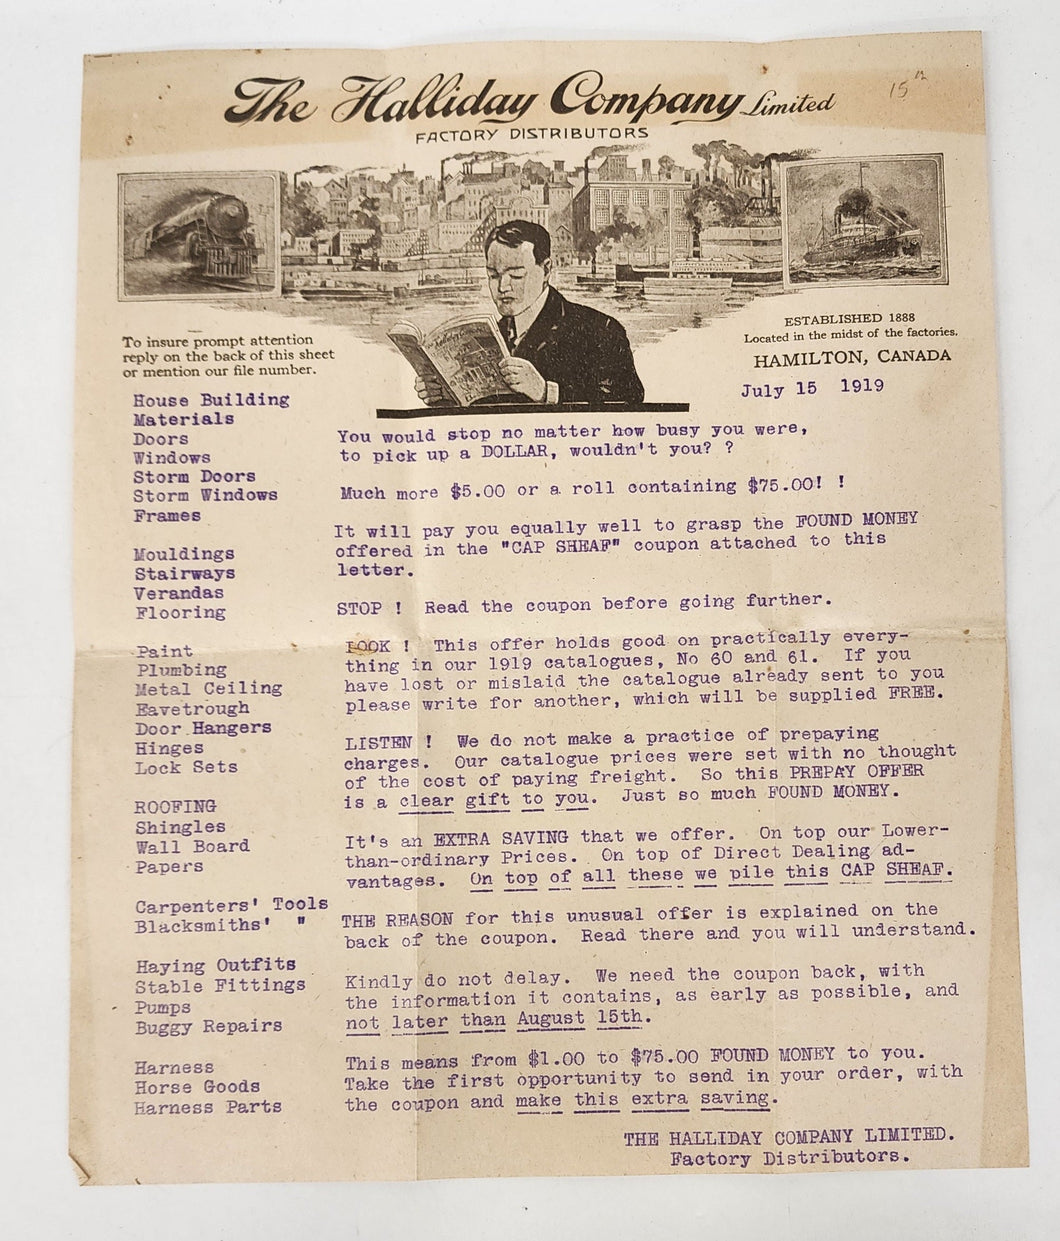 The Halliday Company Limited
FACTORY DISTRIBUTORS
15
To insure prompt attention
reply on the back of this sheet
or mention our file number.
ESTABLISHED 1888
Located in the midst of the factories.
HAMILTON, CANADA
July 15 1919
House Building
Materials
Doors
Windows
Storm Doors
Storm Windows
Frames
Mouldings
Stairways
Verandas
Flooring
Paint
Plumbing
Metal Ceiling
Eavetrough
Door Hangers
Hinges
Lock Sets
ROOFING
Shingles
Wall Board
Papers
Carpenters' Tools
Blacksmiths' "
Haying Outfits
Stable Fittings
Pumps
Buggy Repairs
Harness
Horse Goods
Harness Parts
You would stop no matter how busy you were,
to pick up a DOLLAR, wouldn't you? ?
Much more $5.00 or a roll containing $75.00! !
It will pay you equally well to grasp the FOUND MONEY
offered in the "CAP SHEAF" coupon attached to this
letter.
STOP ! Read the coupon before going further.
LOOK ! This offer holds good on practically every-
thing in our 1919 catalogues, No 60 and 61. If you
have lost or mislaid the catalogue already sent to you
please write for another, which will be supplied FREE.
LISTEN ! We do not make a practice of prepaying
charges. Our catalogue prices were set with no thought
of the cost of paying freight. So this PREPAY OFFER
is a clear gift to you. Just so much FOUND MONEY.
It's an EXTRA SAVING that we offer. On top our Lower-
than-ordinary Prices. On top of Direct Dealing ad-
vantages. On top of all these we pile this CAP SHEAF.
THE REASON for this unusual offer is explained on the
back of the coupon. Read there and you will understand.
Kindly do not delay. We need the coupon back, with
the information it contains, as early as possible, and
not later than August 15th.
This means from $1.00 to $75.00 FOUND MONEY to you.
Take the first opportunity to send in your order, with
the coupon and make this extra saving.
THE HALLIDAY COMPANY LIMITED.
Factory Distributors.